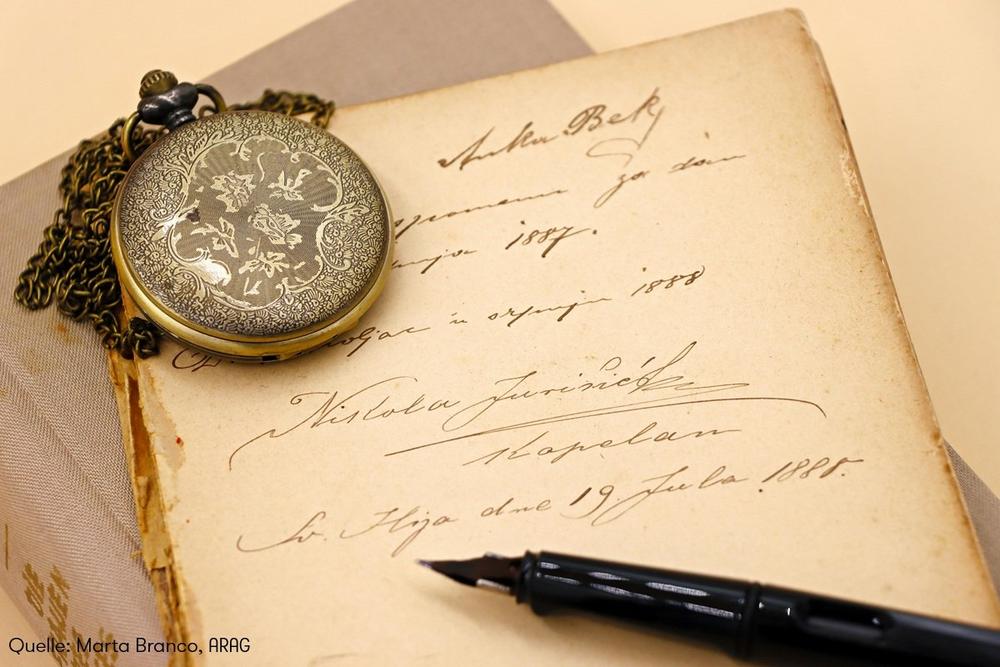 Anka Bek
za dan
1887.
u srpnju 1888
Nikola Jurišić
Kapelan
Sv. Ilija dne 19. Jula 1888.
Quelle: Marta Branco, ARAG